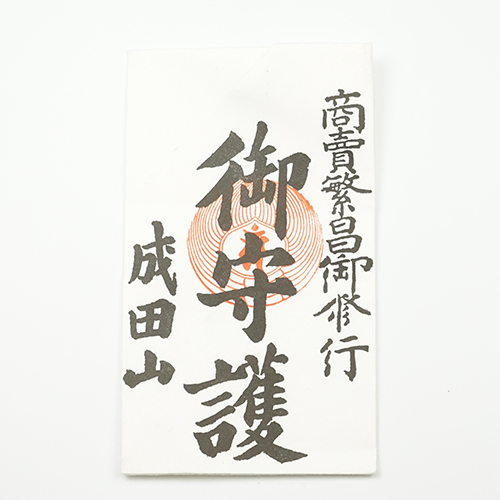 商賣繁昌御修行
御守護
成田山